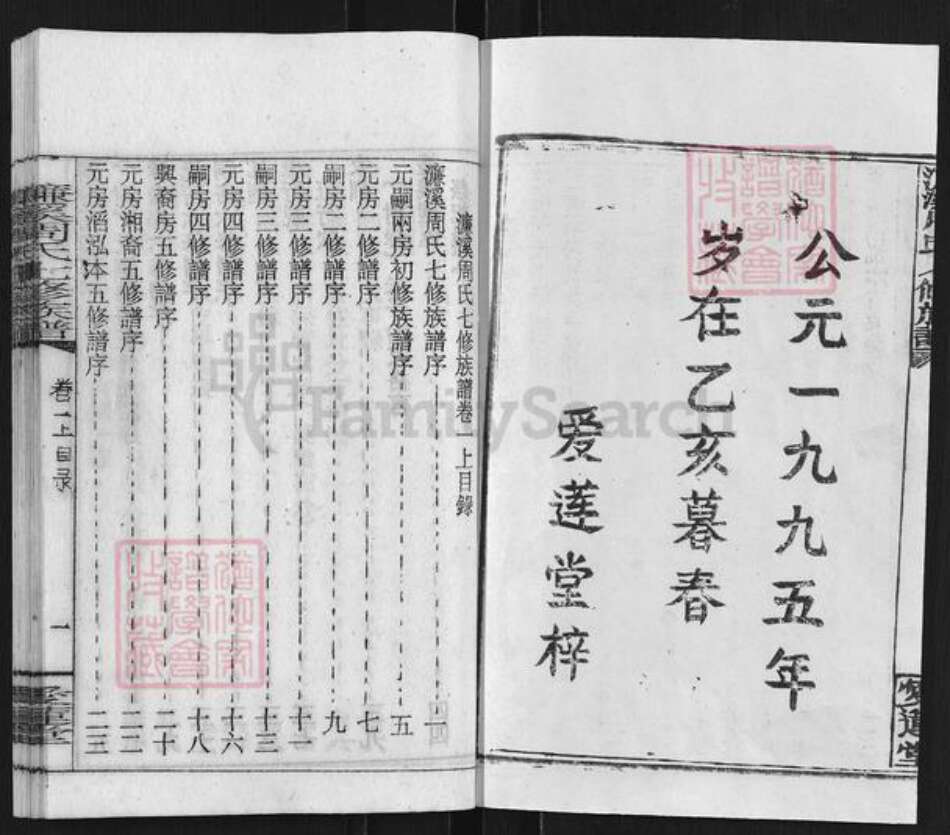 公元一九九五年
岁在乙亥暮春
爱莲堂梓
濂溪周氏七修族譜卷一上目錄
濂溪周氏七修族譜序 一
元嗣兩房初修族譜序 五
元房二修譜序 七
嗣房二修譜序 九
元房三修譜序 十一
嗣房三修譜序 十三
元房四修譜序 十六
嗣房四修譜序 十八
興裔房五修譜序 二十
元房湘裔五修譜序 二二
元房滔泓本五修譜序 二三
濂溪周氏七修族譜
卷一上目录
一
FamilySearch